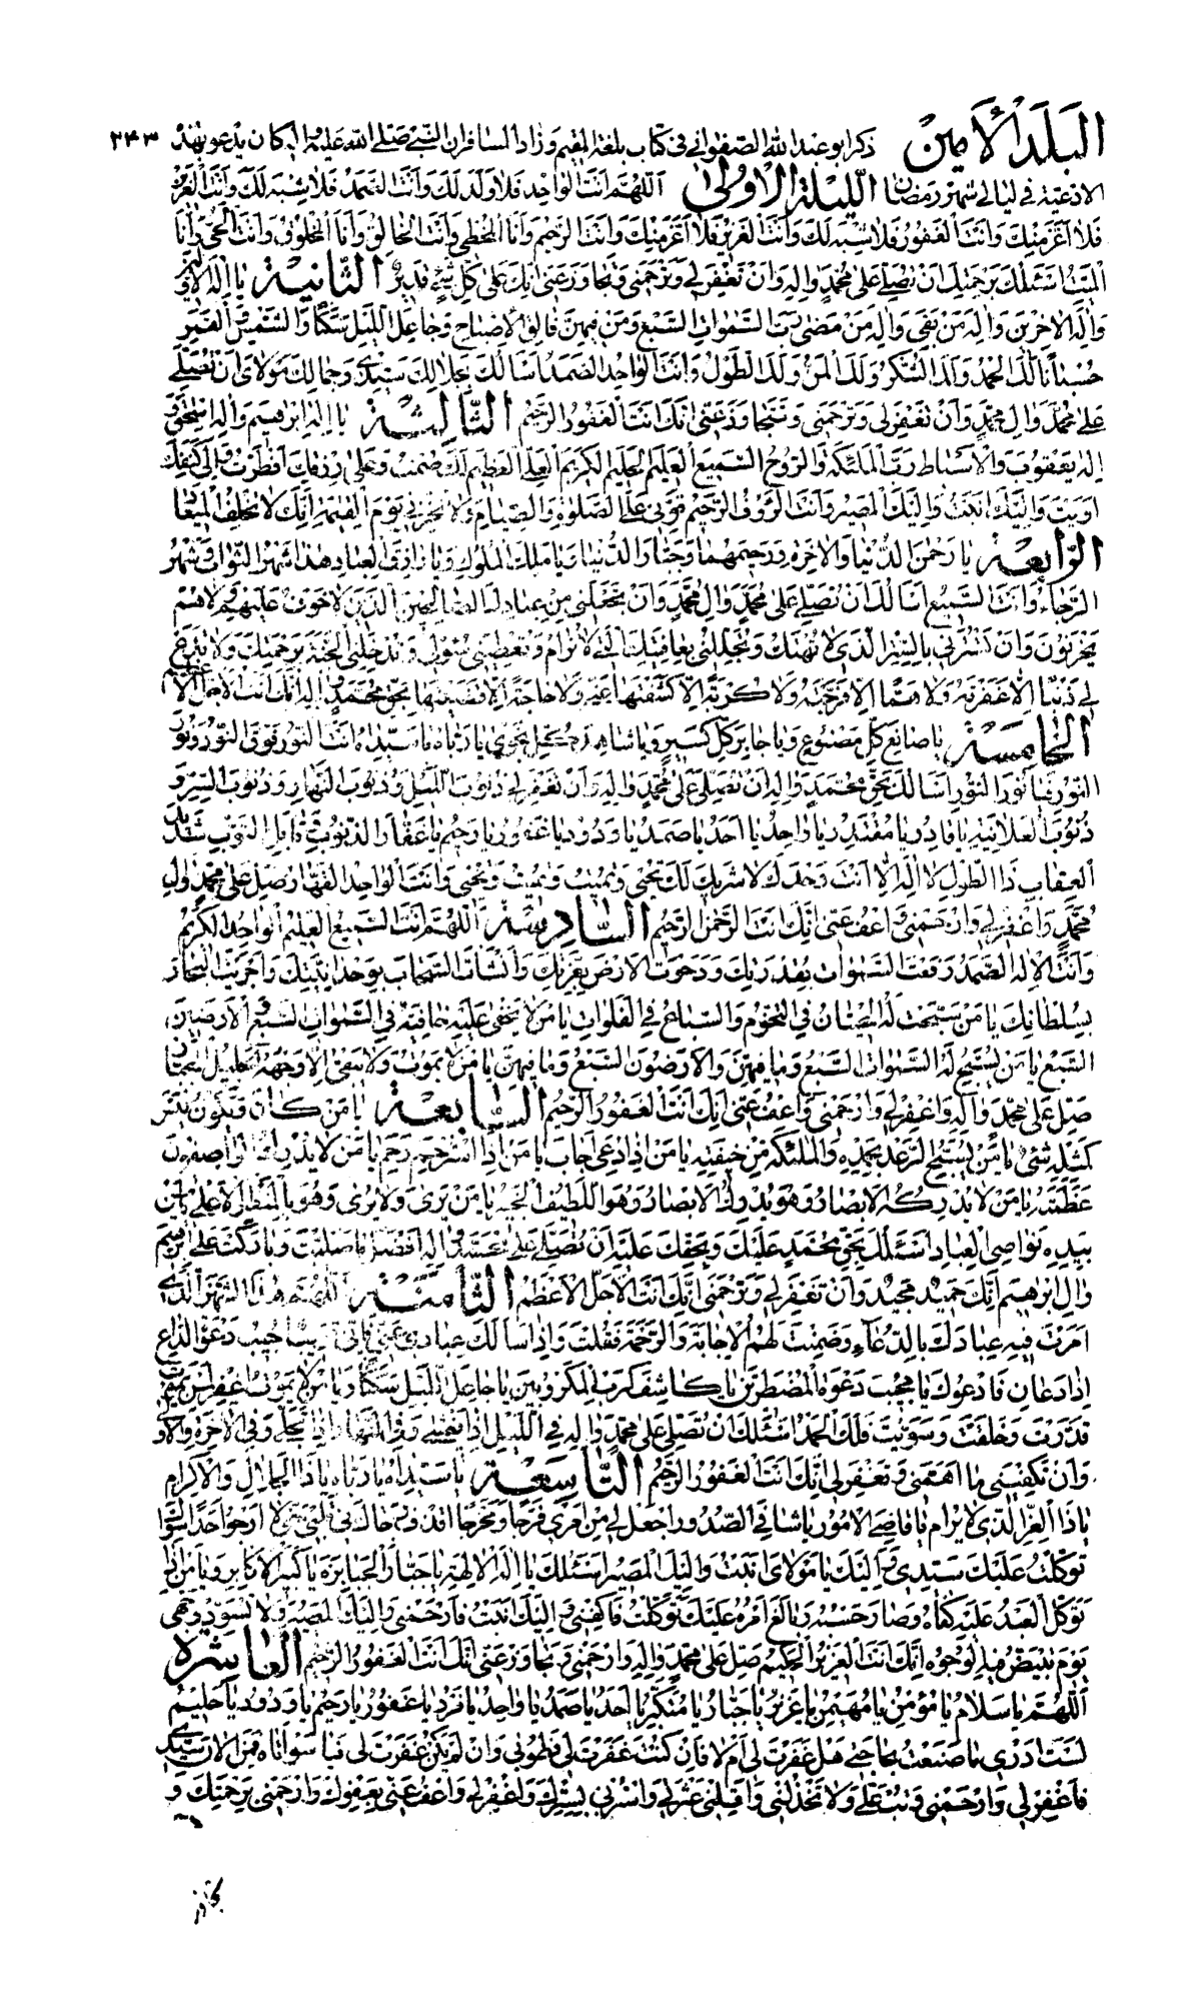 البلد الأمين ذكر ابو عبد الله الصفواني في كتاب بلغة المقيم وزاد المسافر ان النبي صلى الله عليه واله كان يدعو بهذه ۲۴۳
الادعية في ليالي شهر رمضان الليلة الاولى اللهم انت الواحد فلا ولد لك وانت الصمد فلا شبه لك وانت العزيز
فلا اعز منك وانت الغفور فلا شبه لك وانت العزيز فلا اعز منك وانت الرحيم وانا المخطي وانت الخالق وانا المخلوق وانت الحي وانا
الميت اسئلك برحمتك ان تصلي على محمد واله وان تغفر لي وترحمني وتجاوز عني انك على كل شيء قدير الثانية يا اله الاولين
واله الاخرين واله من بقي واله من مضى رب السموات السبع ومن فيهن فالق الاصباح وجاعل الليل سكنا والشمس والقمر
حسبانا لك الحمد ولك الشكر ولك المن ولك الطول وانت الواحد الصمد اسالك بجلالك سيدي وجمالك مولاي ان تصلي
على محمد وال محمد وان تغفر لي وترحمني وتتجاوز عني انك انت الغفور الرحيم الثالثة يا اله ابرهيم واله اسحق و
اله يعقوب والاسباط رب الملئكة والروح السميع العليم الحليم الكريم العلي العظيم لك صمت وعلى رزقك افطرت والى كنفك
اويت واليك انبت واليك المصير وانت الرؤف الرحيم قوني على الصلوة والصيام ولا تخزني يوم القيمة انك لا تخلف الميعاد
الرابعة يا رحمن الدنيا والاخرة ورحيمهما وجبار الدنيا ويا ملك الملوك ويا رازق العباد هذا شهر التواب وشهر
الرجاء وانت السميع اسالك ان تصلي على محمد وال محمد وان تجعلني من عبادك الصالحين الذين لا خوف عليهم ولا هم
يحزنون وان تسترني بالستر الذي لا يهتك وتجللني بعافيتك التي لا ترام وتعطيني سؤلي وتدخلني الجنة برحمتك ولا تدع
لي ذنبا الا غفرته ولا هما الا فرجته ولا كربة الا كشفتها عني ولا حاجة الا قضيتها بحق محمد واله انك انت الاجل الاعظم
الخامسة يا صانع كل مصنوع ويا جابر كل كسير ويا شاهد كل نجوى يا رباه يا سيداه انت النور فوق النور ونور
النور فيا نور النور اسالك بحق محمد واله ان تصلي على محمد واله وان تغفر لي ذنوب الليل وذنوب النهار وذنوب السر و
ذنوب العلانية يا قادر يا مقتدر يا واحد يا احد يا صمد يا ودود يا غفور يا رحيم يا غفار الذنوب قابل التوب شديد
العقاب ذا الطول لا اله الا انت وحدك لا شريك لك تحيي وتميت وتميت وتحيي وانت الواحد القهار صل على محمد وال
محمد واغفر لي وارحمني واعف عني انك انت الرحمن الرحيم السادسة اللهم انت السميع العليم الواحد الكريم
وانت الاله الصمد رفعت السموات بقدرتك ودحوت الارض بعزتك وانشات السحاب بوحدانيتك واجريت البحار
بسلطانك يا من سبحت له الحيتان في التخوم والسباع في الفلوات يا من لا يخفى عليه خافية في السموات السبع والارضين
السبع يا من يسبح له السموات السبع وما فيهن والارضون السبع وما فيهن يا من لا يموت ولا يبقى الا وجهه الجليل الجبار
صل على محمد واله واغفر لي وارحمني واعف عني انك انت الغفور الرحيم السابعة يا من كان ويكون ليس
كمثله شيء يا من يسبح الرعد بحمده والملئكة من خيفته يا من اذا دعي اجاب يا من اذا استرحم رحم يا من لا يدرك الواصفون
عظمته يا من لا تدركه الابصار وهو يدرك الابصار وهو اللطيف الخبير يا من يرى ولا يرى وهو بالمنظر الاعلى يا من
بيده نواصي العباد اسئلك بحق محمد عليك وبحقك عليه ان تصلي على محمد واله افضل ما صليت وباركت على ابرهيم
وال ابرهيم انك حميد مجيد وان تغفر لي وترحمني انك انت الاجل الاعظم الثامنة اللهم هذا الشهر الذي
امرت فيه عبادك بالدعاء وضمنت لهم الاجابة والرحمة فقلت واذا سالك عبادي عني فاني قريب اجيب دعوة الداع
اذا دعان فادعوك يا مجيب دعوة المضطرين يا كاشف كرب المكروبين يا جاعل الليل سكنا ويا من لا يموت اغفر لمن يموت
قدرت وخلقت وسويت فلك الحمد اسئلك ان تصلي على محمد واله في الليل اذا يغشى وفي النهار اذا تجلى وفي الاخرة والاولى
وان تكفيني ما اهمني وتغفر لي انك انت الغفور الرحيم التاسعة يا سيداه يا رباه يا ذا الجلال والاكرام
يا ذا العز الذي لا يرام يا قاضي الامور يا شافي الصدور اجعل لي من امري فرجا ومخرجا واقذف رجاك في قلبي حتى لا ارجو احدا سواك
توكلت عليك سيدي واليك يا مولاي انبت واليك المصير اسئلك يا اله الالهة يا جبار الجبابرة يا كبير الاكابر ويا من اذا
توكل العبد عليه كفاه وصار حسبه وبالغ امره عليك توكلت فاكفني واليك انبت فارحمني واليك المصير ولا تسود وجهي
يوم تبيض فيه الوجوه انك انت العزيز الحكيم صل على محمد واله وارحمني وتجاوز عني انك انت الغفور الرحيم العاشرة
اللهم يا سلام يا مؤمن يا مهيمن يا عزيز يا جبار يا متكبر يا احد يا صمد يا واحد يا فرد يا غفور يا رحيم يا ودود يا حليم
لست ادري ما صنعت بحاجتي هل غفرت لي ام لا فان كنت غفرت لي فطوبى لي وان لم تكن غفرت لي فيا سواتاه فمن الان سيدي
فاغفر لي وارحمني وتب علي ولا تخذلني واقلني عثرتي واسترني بسترك واغفر لي واعف عني بعفوك وارحمني برحمتك و
تجاوز